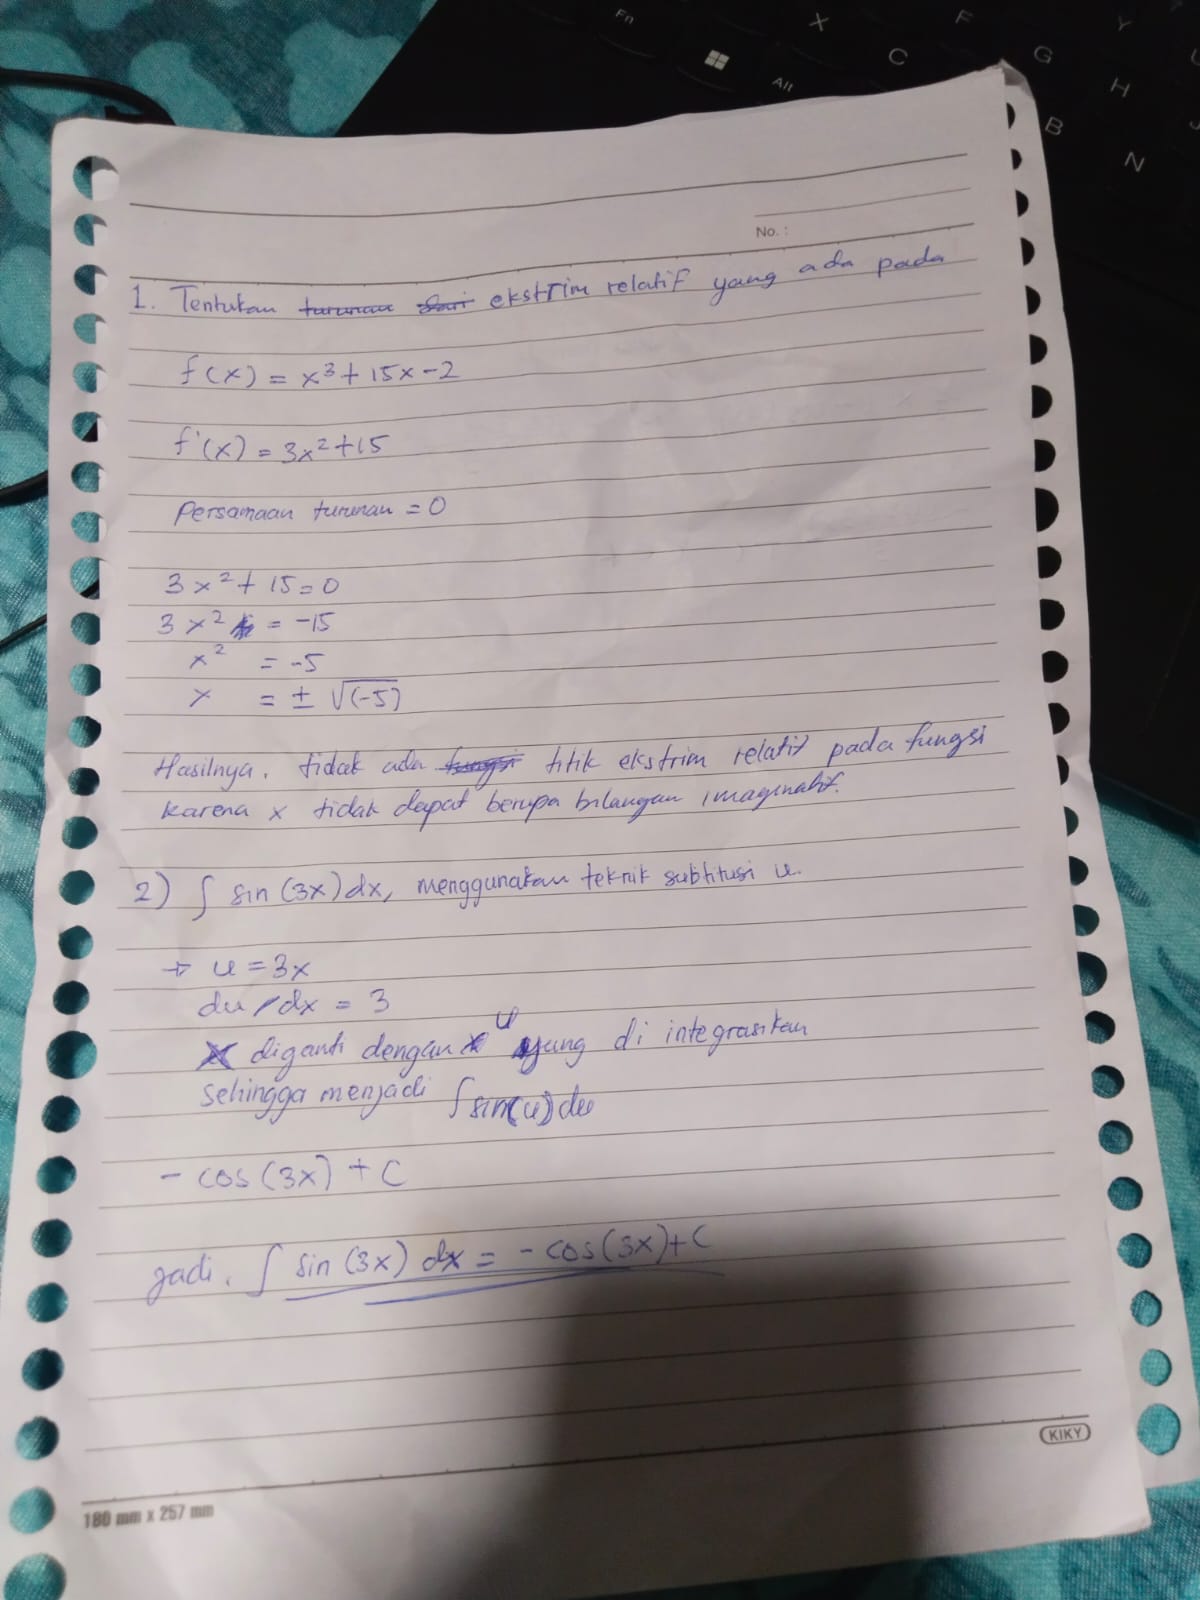 Fn
X
F
Y
C
G
H
Alt
B
N
No. :
1. Tentukan turunan dari ekstrim relatif yang ada pada
f(x) = x³ + 15x - 2
f'(x) = 3x² + 15
Persamaan turunan = 0
3x² + 15 = 0
3x² = -15
x² = -5
x = ± √(-5)
Hasilnya, tidak ada fungsi titik ekstrim relatif pada fungsi
karena x tidak dapat berupa bilangan imaginatif.
2) ∫ sin (3x) dx, menggunakan teknik subtitusi u.
→ u = 3x
du/dx = 3
x diganti dengan u yang di integrasikan
sehingga menjadi ∫ sin(u) du
- cos (3x) + C
Jadi, ∫ sin (3x) dx = - cos(3x) + C
KIKY
180 mm x 257 mm